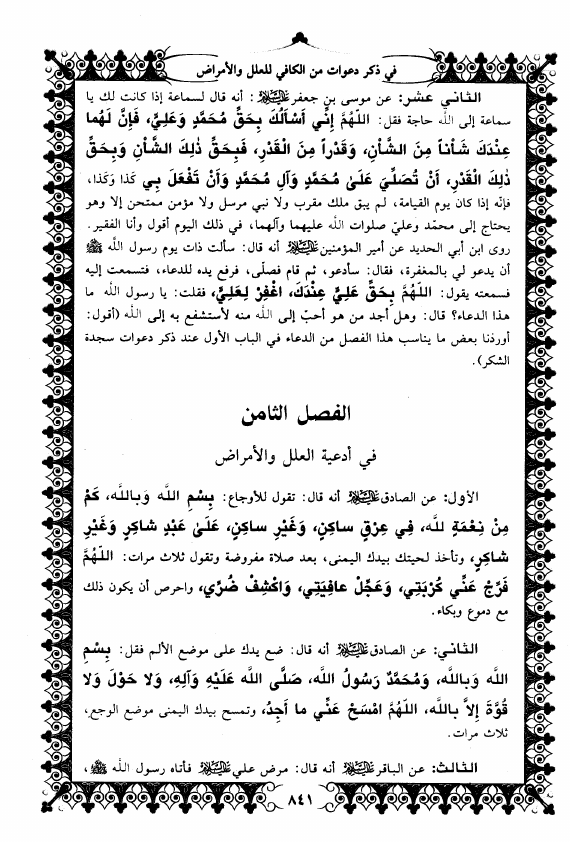 في ذكر دعوات من الكافي للعلل والأمراض
الثاني عشر: عن موسى بن جعفر عليه السلام: أنه قال لسماعة إذا كانت لك يا
سماعة إلى الله حاجة فقل: اللهُمَّ إِنِّي أَسْأَلُكَ بِحَقِّ مُحَمَّدٍ وَعَلِيٍّ، فَإِنَّ لَهُما
عِنْدَكَ شَأْناً مِنَ الشَّأْنِ، وَقَدْراً مِنَ الْقَدْرِ، فَبِحَقِّ ذلِكَ الشَّأْنِ وَبِحَقِّ
ذلِكَ الْقَدْرِ، أَنْ تُصَلِّيَ عَلىٰ مُحَمَّدٍ وَآلِ مُحَمَّدٍ وَأَنْ تَفْعَلَ بِي كَذا وَكَذا،
فإنّه إذا كان يوم القيامة، لم يبق ملك مقرب ولا نبي مرسل ولا مؤمن ممتحن إلا وهو
يحتاج إلى محمّد وعليّ صلوات الله عليهما وآلهما، في ذلك اليوم أقول وأنا الفقير.
روى ابن أبي الحديد عن أمير المؤمنين عليه السلام أنه قال: سألت ذات يوم رسول الله ﷺ
أن يدعو لي بالمغفرة، فقال: سأدعو، ثم قام فصلّى، فرفع يده للدعاء، فتسمعت إليه
فسمعته يقول: اللهُمَّ بِحَقِّ عَلِيٍّ عِنْدَكَ، اغْفِرْ لِعَلِيٍّ، فقلت: يا رسول الله ما
هذا الدعاء؟ قال: وهل أجد من هو أحبّ إلى الله منه لأستشفع به إلى الله (أقول:
أوردنا بعض ما يناسب هذا الفصل من الدعاء في الباب الأول عند ذكر دعوات سجدة
الشكر).
الفصل الثامن
في أدعية العلل والأمراض
الأول: عن الصادق عليه السلام أنه قال: تقول للأوجاع: بِسْمِ اللَّه وَبِاللَّه، كَمْ
مِنْ نِعْمَةٍ للَّه، فِي عِرْقٍ ساكِنٍ، وَغَيْرِ ساكِنٍ، عَلىٰ عَبْدٍ شاكِرٍ وَغَيْرِ
شاكِرٍ، وتأخذ لحيتك بيدك اليمنى، بعد صلاة مفروضة وتقول ثلاث مرات: اللهُمَّ
فَرِّجْ عَنِّي كُرْبَتِي، وَعَجِّلْ عافِيَتِي، وَاكْشِفْ ضُرِّي، واحرص أن يكون ذلك
مع دموع وبكاء.
الثاني: عن الصادق عليه السلام أنه قال: ضع يدك على موضع الألم فقل: بِسْمِ
اللَّه وَبِاللَّه، وَمُحَمَّدٌ رَسُولُ اللَّه، صَلَّى اللَّه عَلَيْهِ وَآلِهِ، وَلا حَوْلَ وَلا
قُوَّةَ إِلاَّ بِاللَّه، اللهُمَّ امْسَحْ عَنِّي ما أَجِدُ، وتمسح بيدك اليمنى موضع الوجع،
ثلاث مرات.
الثالث: عن الباقر عليه السلام أنه قال: مرض علي عليه السلام فأتاه رسول الله ﷺ،
٨٤١